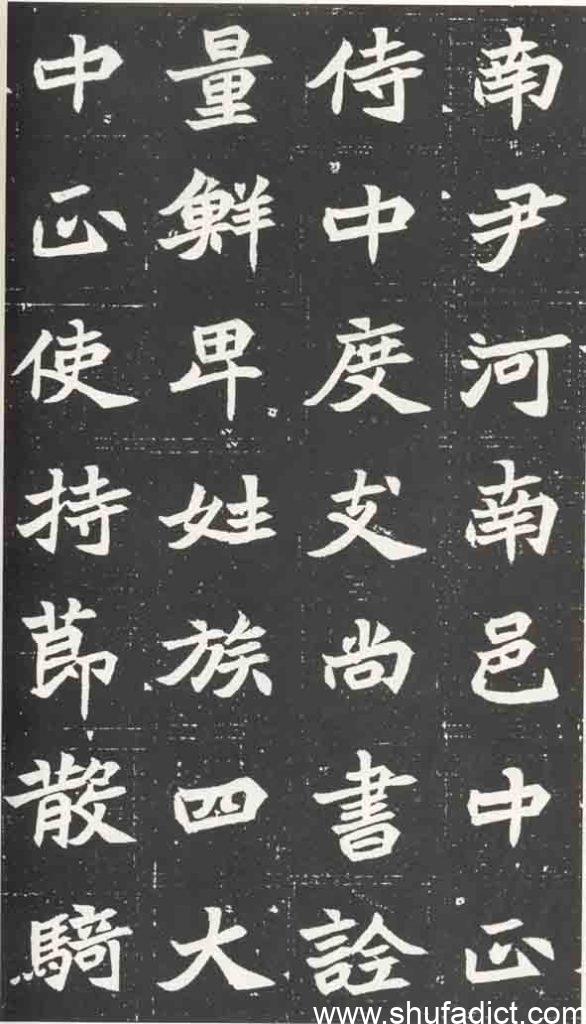 南尹河南邑中正
侍中度支尚書詮
量鮮卑姓族四大
中正使持節散騎
www.shufadict.com